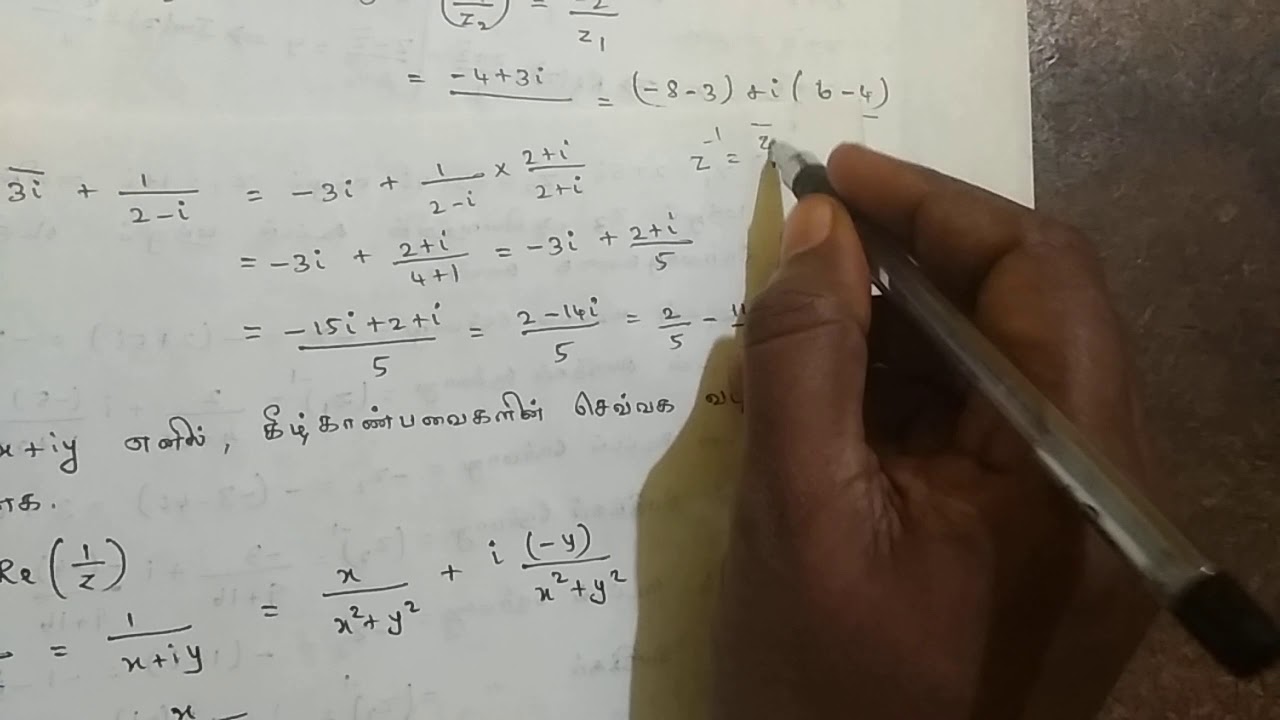 = -4+3i = (-8-3) + i ( 6-4)
z⁻¹ =
3i̅ + 1/(2-i) = -3i + 1/(2-i) × (2+i)/(2+i)
= -3i + (2+i)/(4+1) = -3i + (2+i)/5
= (-15i+2+i)/5 = (2-14i)/5 = 2/5 -
x+iy எனில், கீழ்காண்பவைகளின் செவ்வக
Re (1/z) = x/(x²+y²) + i (-y)/(x²+y²)
= 1/(x+iy)
x